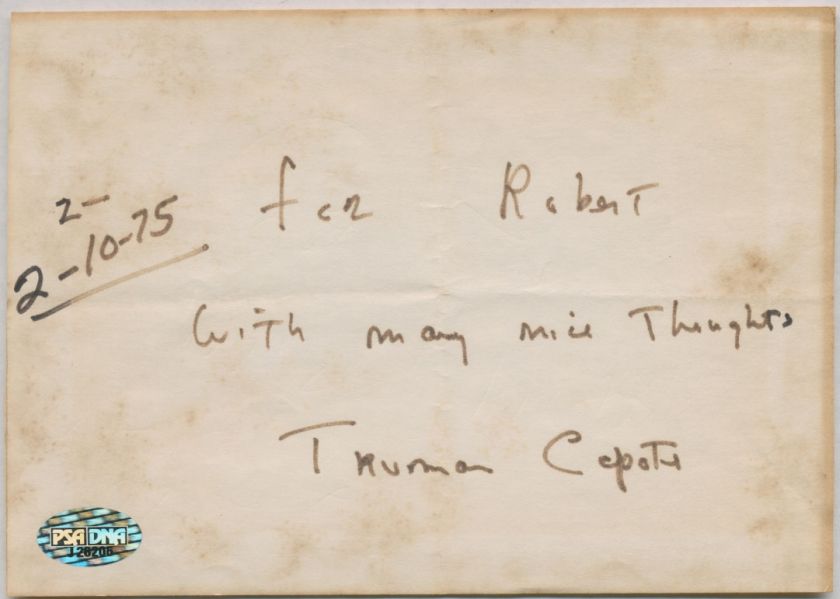 2-
2-10-75
for Robert
With many nice Thoughts
Truman Capote
PSA DNA
J26206